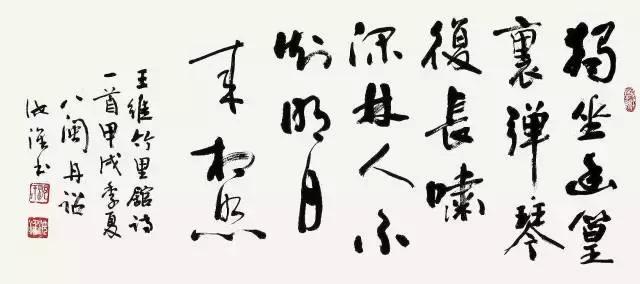 獨坐幽篁
裏彈琴
復長嘯
深林人不
知明月
来相照
王維竹里館詩
一首甲戌季夏
八閩丹詔
书